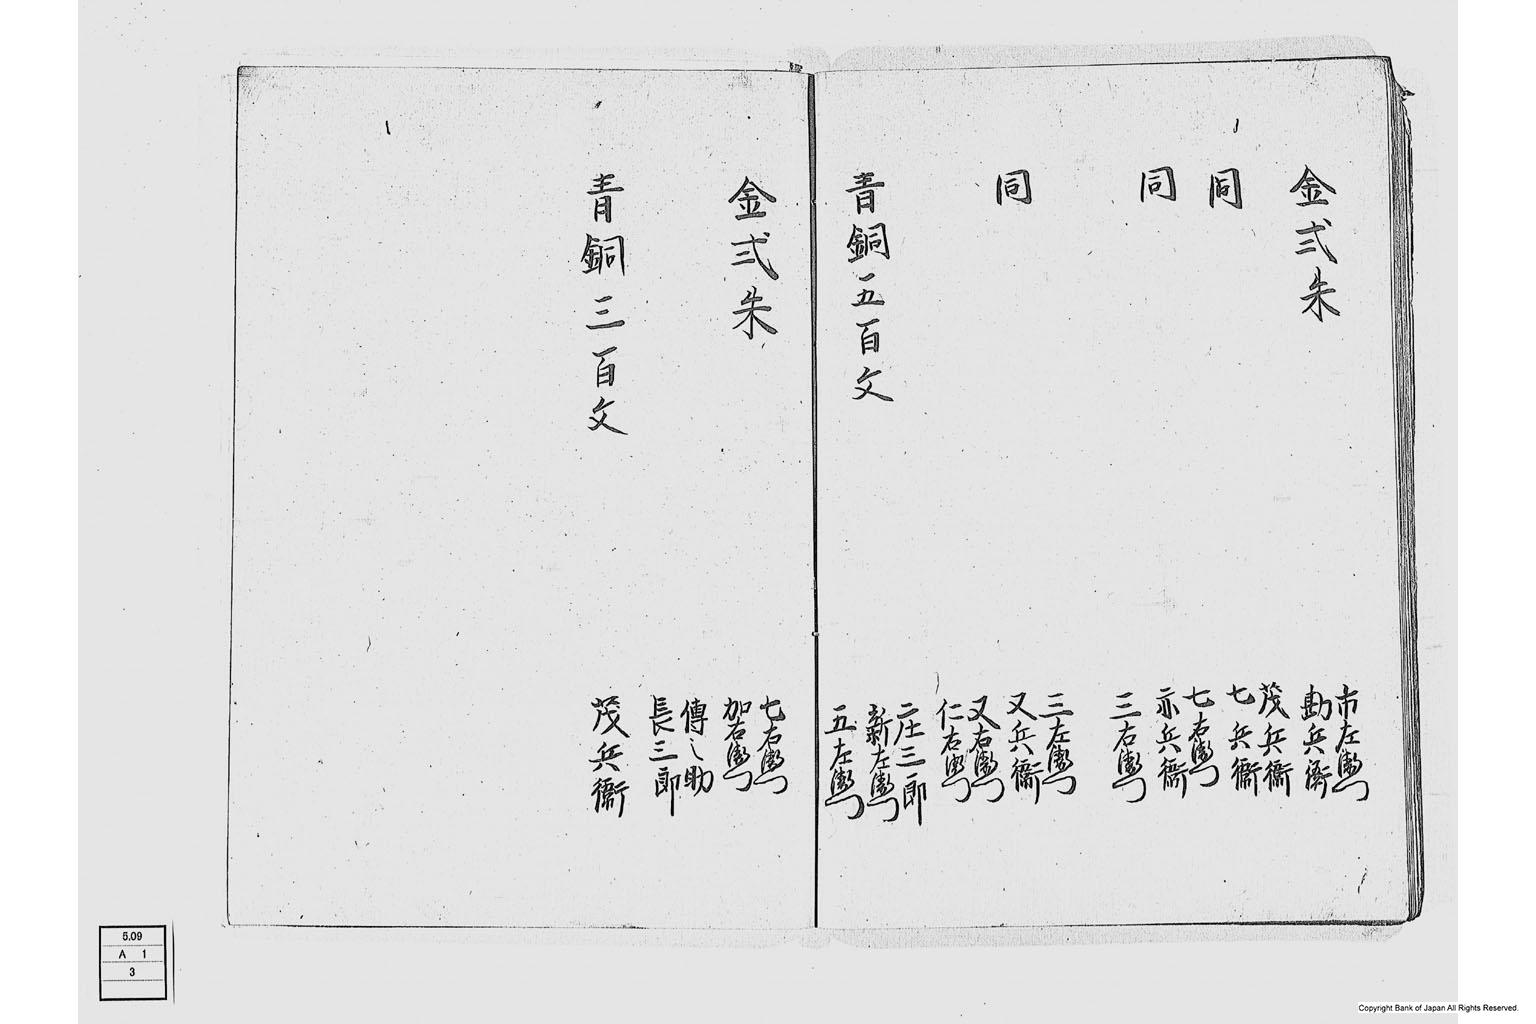 金弐朱
市左衛門
勘兵衛
茂兵衛
同
七兵衛
七右衛門
同
亦兵衛
三右衛門
同
三左衛門
又兵衛
又右衛門
仁右衛門
青銅五百文
二庄三郎
新左衛門
五左衛門
金弐朱
七右衛門
加右衛門
傳之助
長三郎
青銅三百文
茂兵衛
5.09
A 1
3
Copyright Bank of Japan All Rights Reserved.